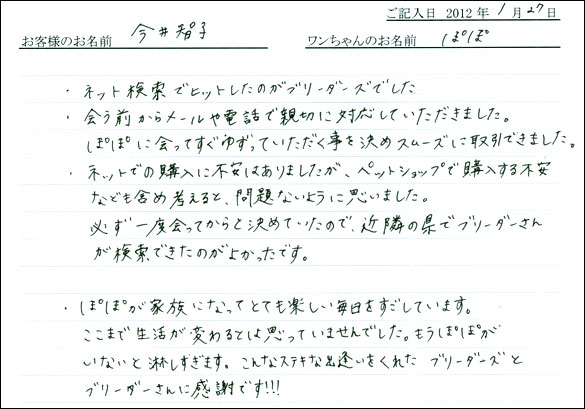 ご記入日 2012年 1月27日
お客様のお名前 今井智子 ワンちゃんのお名前 ぽぽ
・ネット検索でヒットしたのがブリーダーズでした
・会う前からメールや電話で親切に対応していただきました。
ぽぽに会ってすぐゆずっていただく事を決めスムーズに取引できました。
・ネットでの購入に不安はありましたが、ペットショップで購入する不安
なども含め考えると、問題ないように思いました。
必ず一度会ってからと決めていたので、近隣の県でブリーダーさん
が検索できたのがよかったです。
・ぽぽが家族になってとても楽しい毎日をすごしています。
ここまで生活が変わるとは思っていませんでした。もうぽぽが
いないと淋しすぎます。こんなステキな出逢いをくれた ブリーダーズと
ブリーダーさんに感謝です!!!